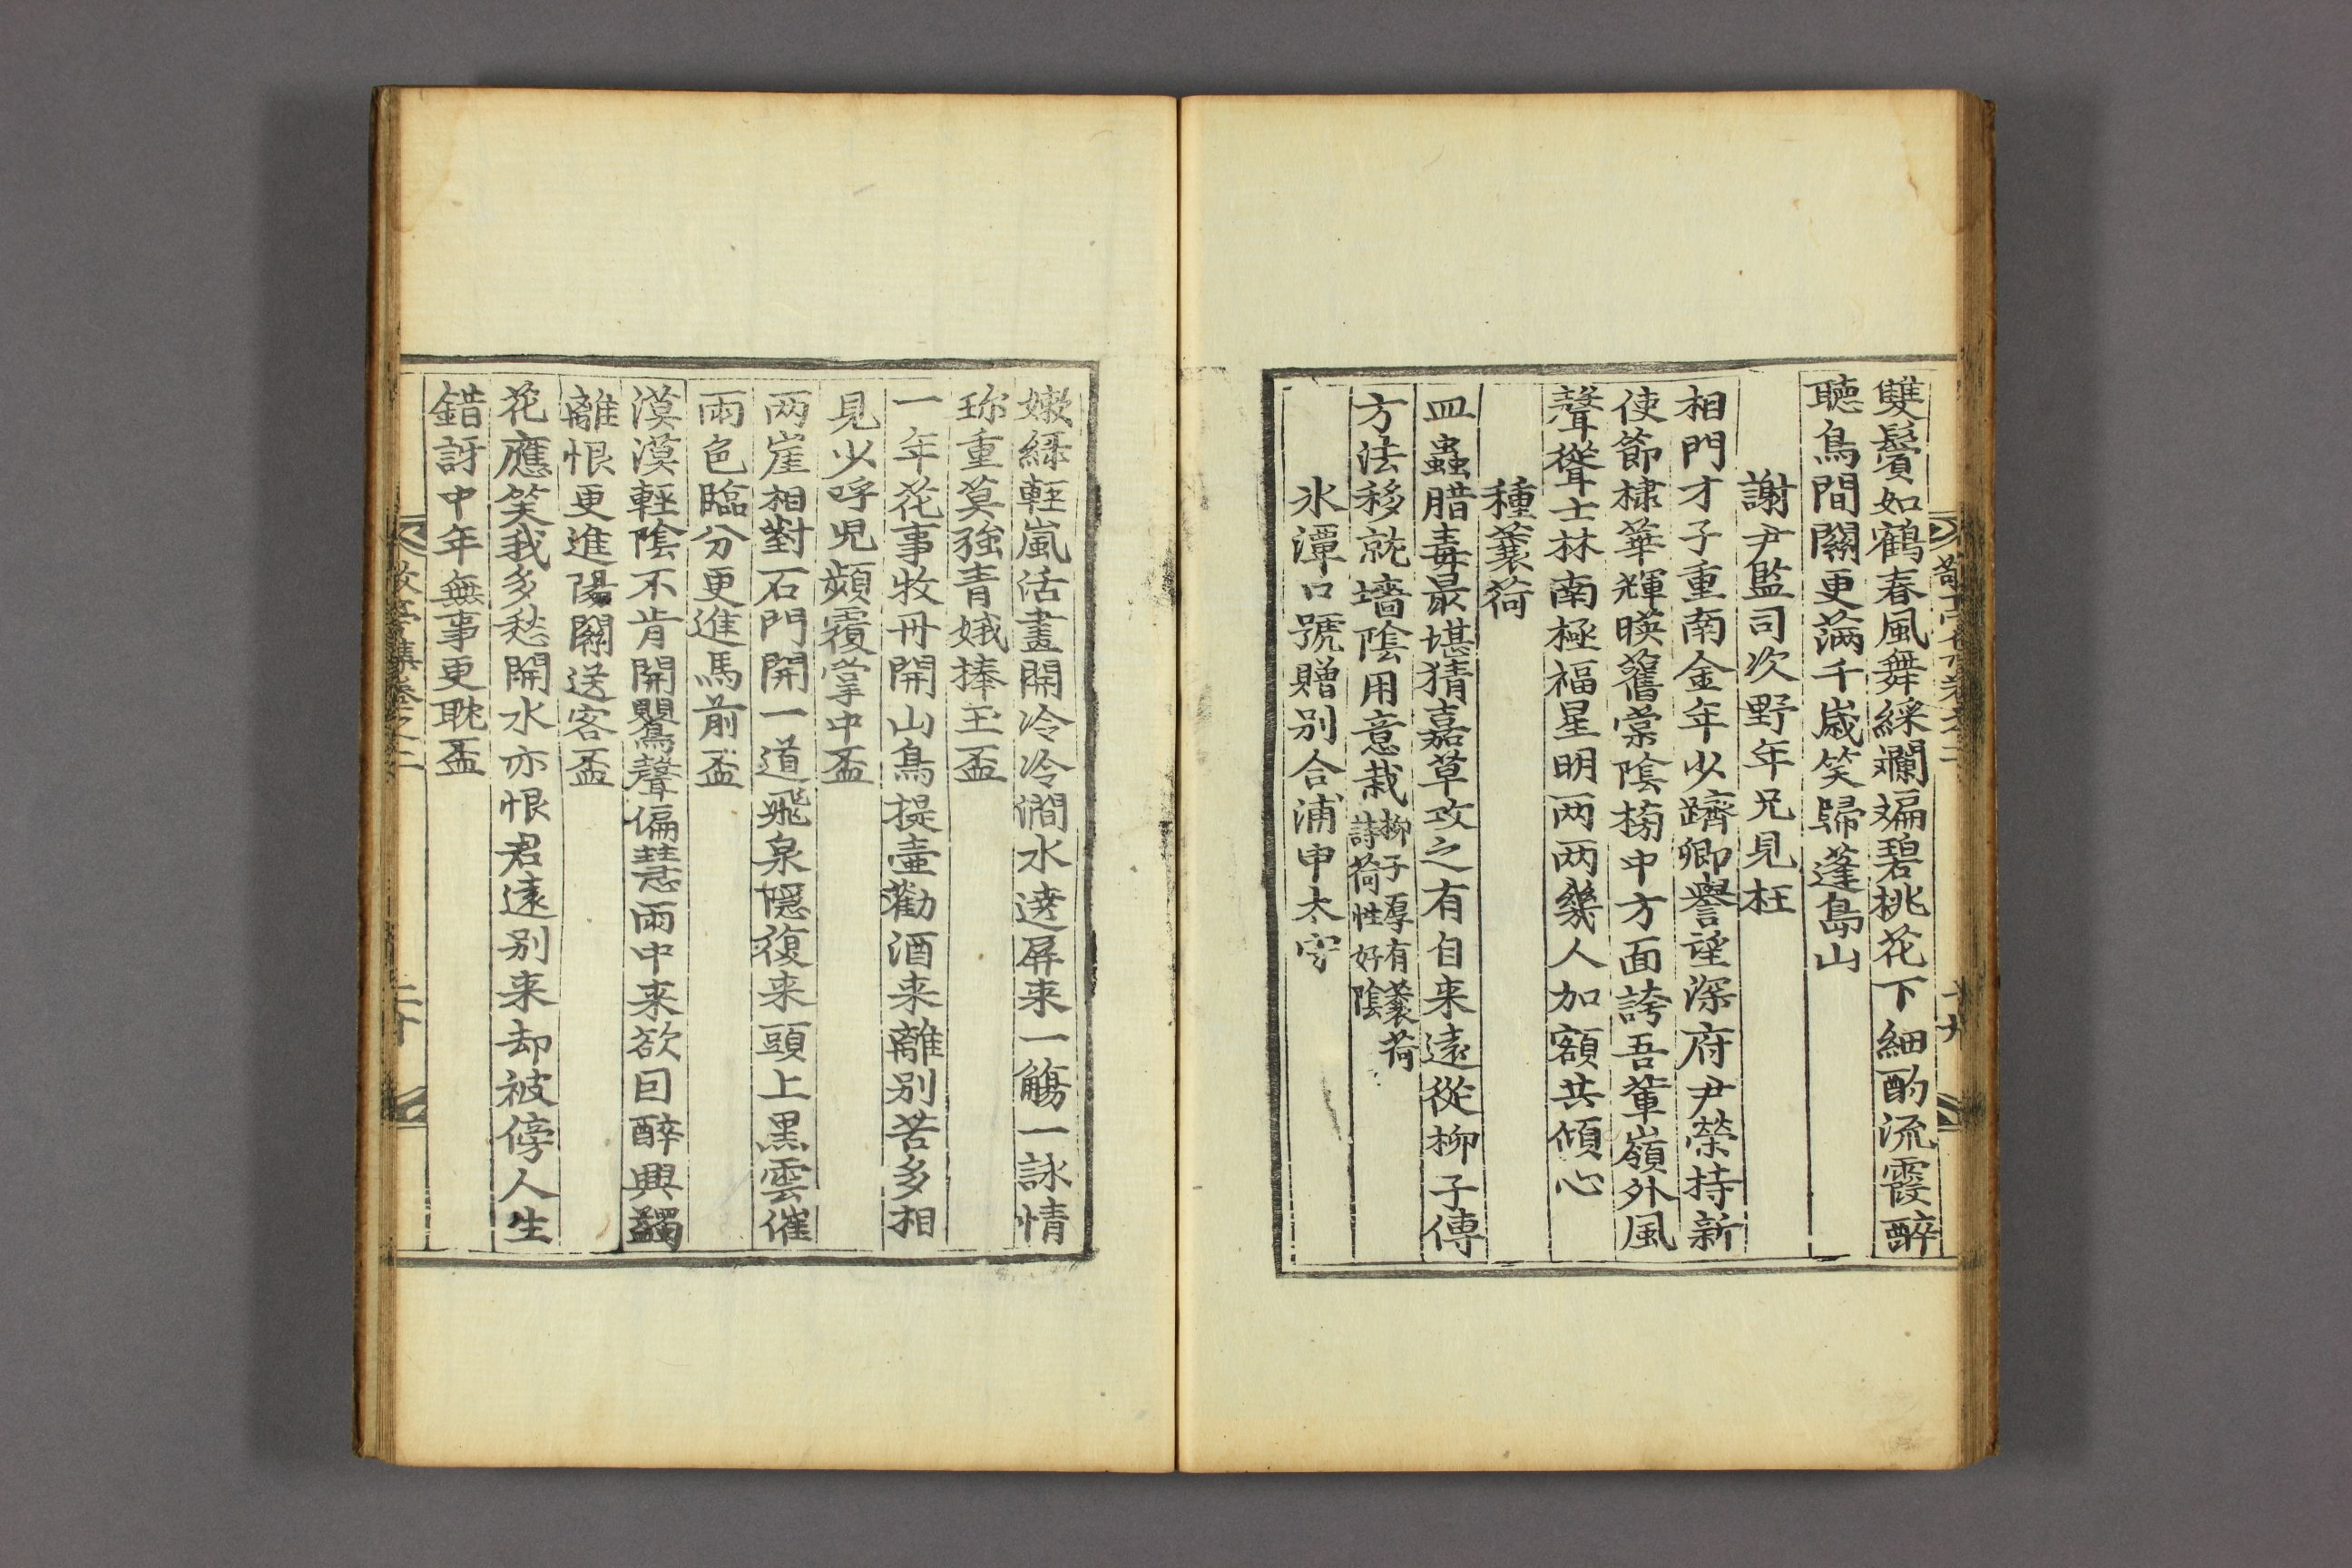 雙鬢如鶴春風舞綵斕斒碧桃花下細酌流霞醉
聽鳥間關更滿千嵗笑歸蓬島山
謝尹監司次野年兄見枉
相門才子重南金年少躋卿譽望深府尹榮持新
使節棣華輝暎舊棠陰榜中方面誇吾輩嶺外風
聲聳士林南極福星明两两幾人加額共傾心
種蘘荷
皿蟲腊毒最堪猜嘉草攻之有自来遠從柳子傳
方法移就墻陰用意栽
柳子厚有蘘荷
詩荷性好陰
氷潭口號贈別合浦申太守
嫩緑輕嵐活畫開泠泠澗水遶屏来一觴一詠情
珎重莫強青娥捧玉盃
一年花事牧丹開山鳥提壷勸酒来離別苦多相
見少呼兒頻覆掌中盃
两崖相對石門開一道飛泉隠復来頭上黒雲催
雨色臨分更進馬前盃
漠漠輕陰不肯開鸎聲偏慧雨中来欲回醉興蠲
離恨更進陽關送客盃
花應笑我多愁開水亦恨君遠别来却被傍人生
錯訝中年無事更耽盃
集卷之二
二十